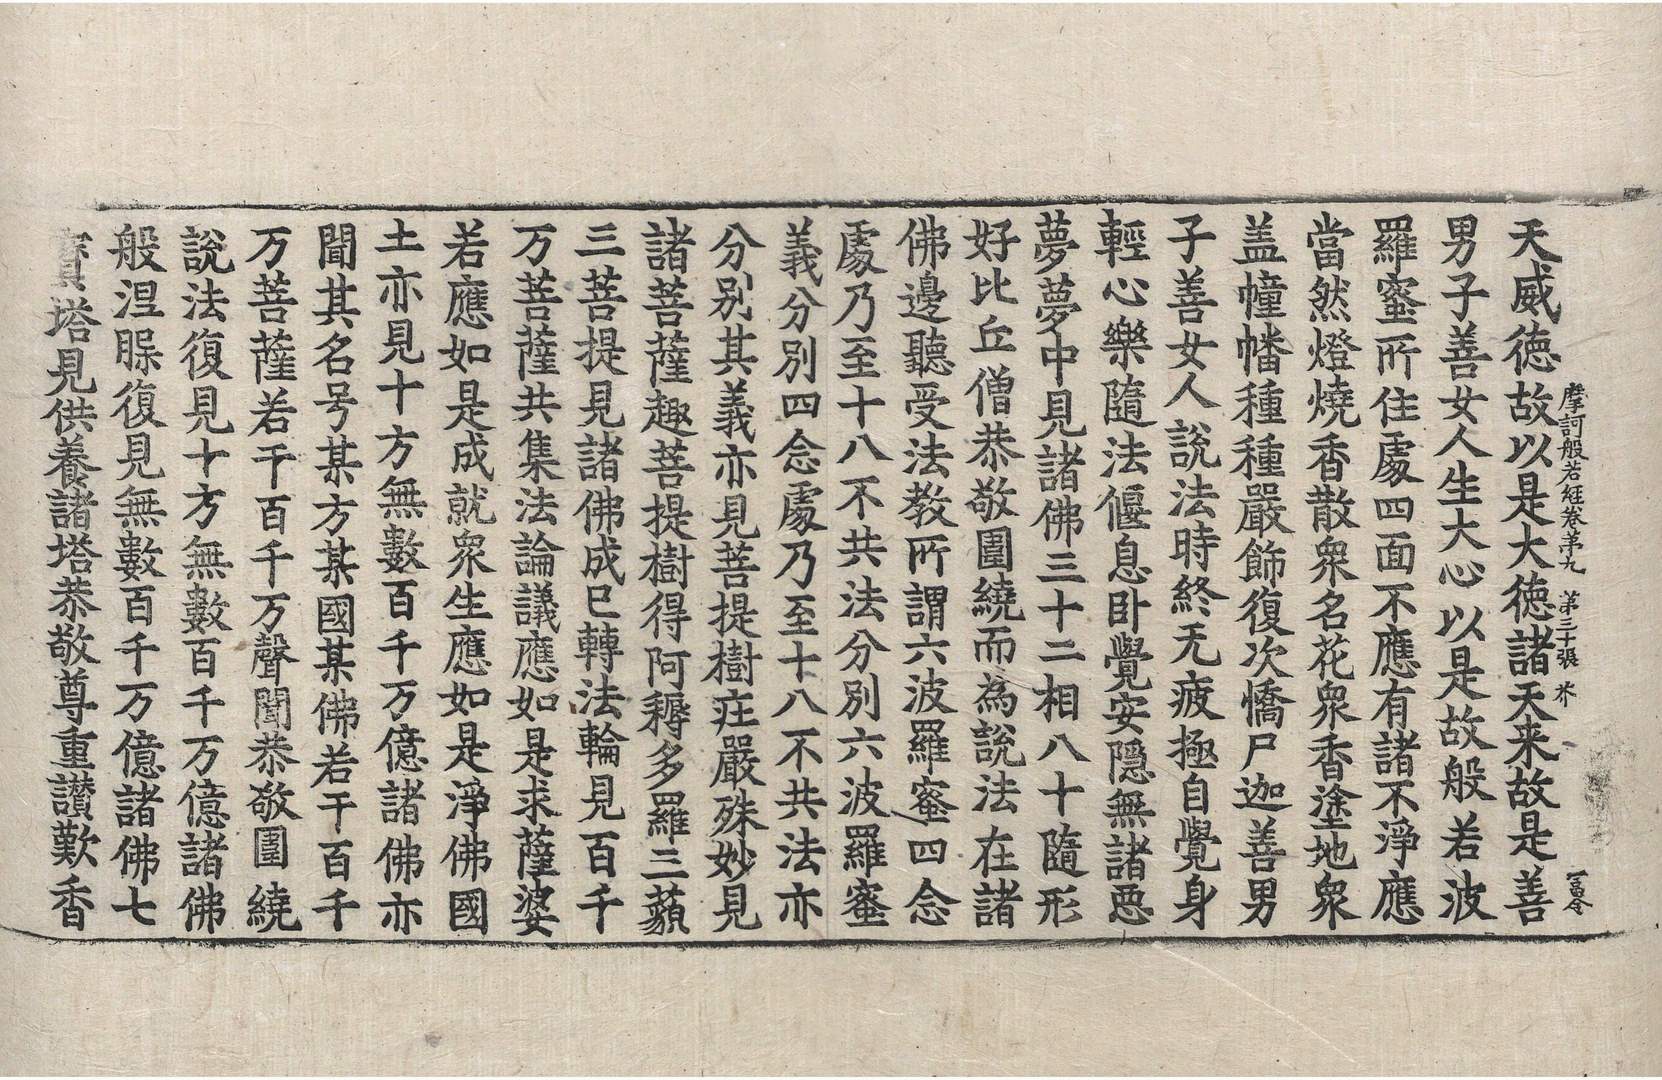 摩訶般若経卷第九 第三十張 芥
天威徳故以是大徳諸天来故是善
男子善女人生大心以是故般若波
羅蜜所住處四面不應有諸不淨應
當然燈燒香散衆名花衆香塗地衆
盖幢幡種種嚴飾復次憍尸迦善男
子善女人説法時終无疲極自覺身
輕心樂隨法偃息卧覺安隱無諸惡
夢夢中見諸佛三十二相八十隨形
好比丘僧恭敬圍繞而為説法在諸
佛邊聽受法教所謂六波羅蜜四念
處乃至十八不共法分別六波羅蜜
義分別四念處乃至十八不共法亦
分別其義亦見菩提樹莊嚴殊妙見
諸菩薩趣菩提樹得阿耨多羅三藐
三菩提見諸佛成已轉法輪見百千
万菩薩共集法論議應如是求薩婆
若應如是成就衆生應如是淨佛國
土亦見十方無數百千万億諸佛亦
聞其名号某方某國某佛若干百千
万菩薩若干百千万聲聞恭敬圍繞
説法復見十方無數百千万億諸佛
般涅槃復見無數百千万億諸佛七
寳塔見供養諸塔恭敬尊重讃歎香